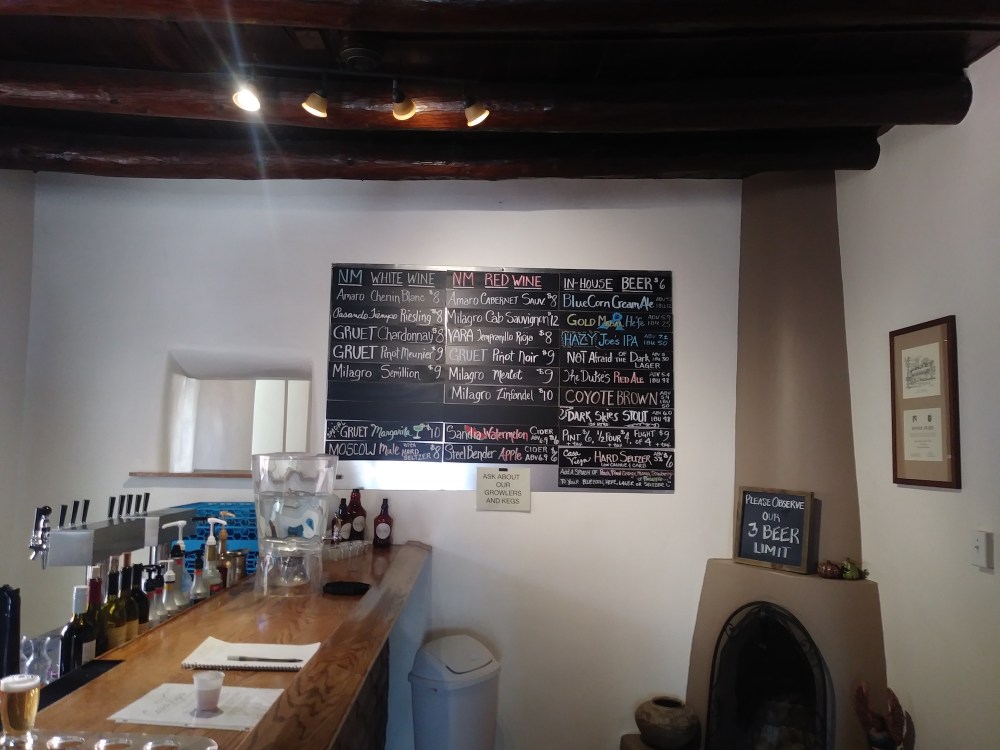 NM WHITE WINE
Amaro Chenin Blanc $8
Riesling $8
GRUET Chardonnay $8
GRUET Pinot Meunier $9
Milagro Semillion $9
GRUET Margarita $10
MOSCOW Mule WITH HARD SELTZER $8
NM RED WINE
Amaro CABERNET SAUV. $8
Milagro Cab Sauvignon $12
VARA Tempranillo Roja $8
GRUET Pinot Noir $9
Milagro Merlot $9
Milagro Zinfandel $10
Sandia Watermelon CIDER
Steel Bender Apple CIDER
IN-HOUSE BEER $6
Blue Corn Cream Ale
GOLD Hefe
HAZY Joe's IPA
NOT Afraid OF THE Dark LAGER
The Duke's RED ALE
COYOTE BROWN
DARK Skies STOUT
PINT $6, 1/2 POUR $4, FLIGHT OF 4 $9
Casa Vieja HARD SELTZER
TO YOUR BLUECORN, HEFE, LAGER OR SELTZER
ASK ABOUT
OUR
GROWLERS
AND KEGS
PLEASE OBSERVE
OUR
3 BEER
LIMIT